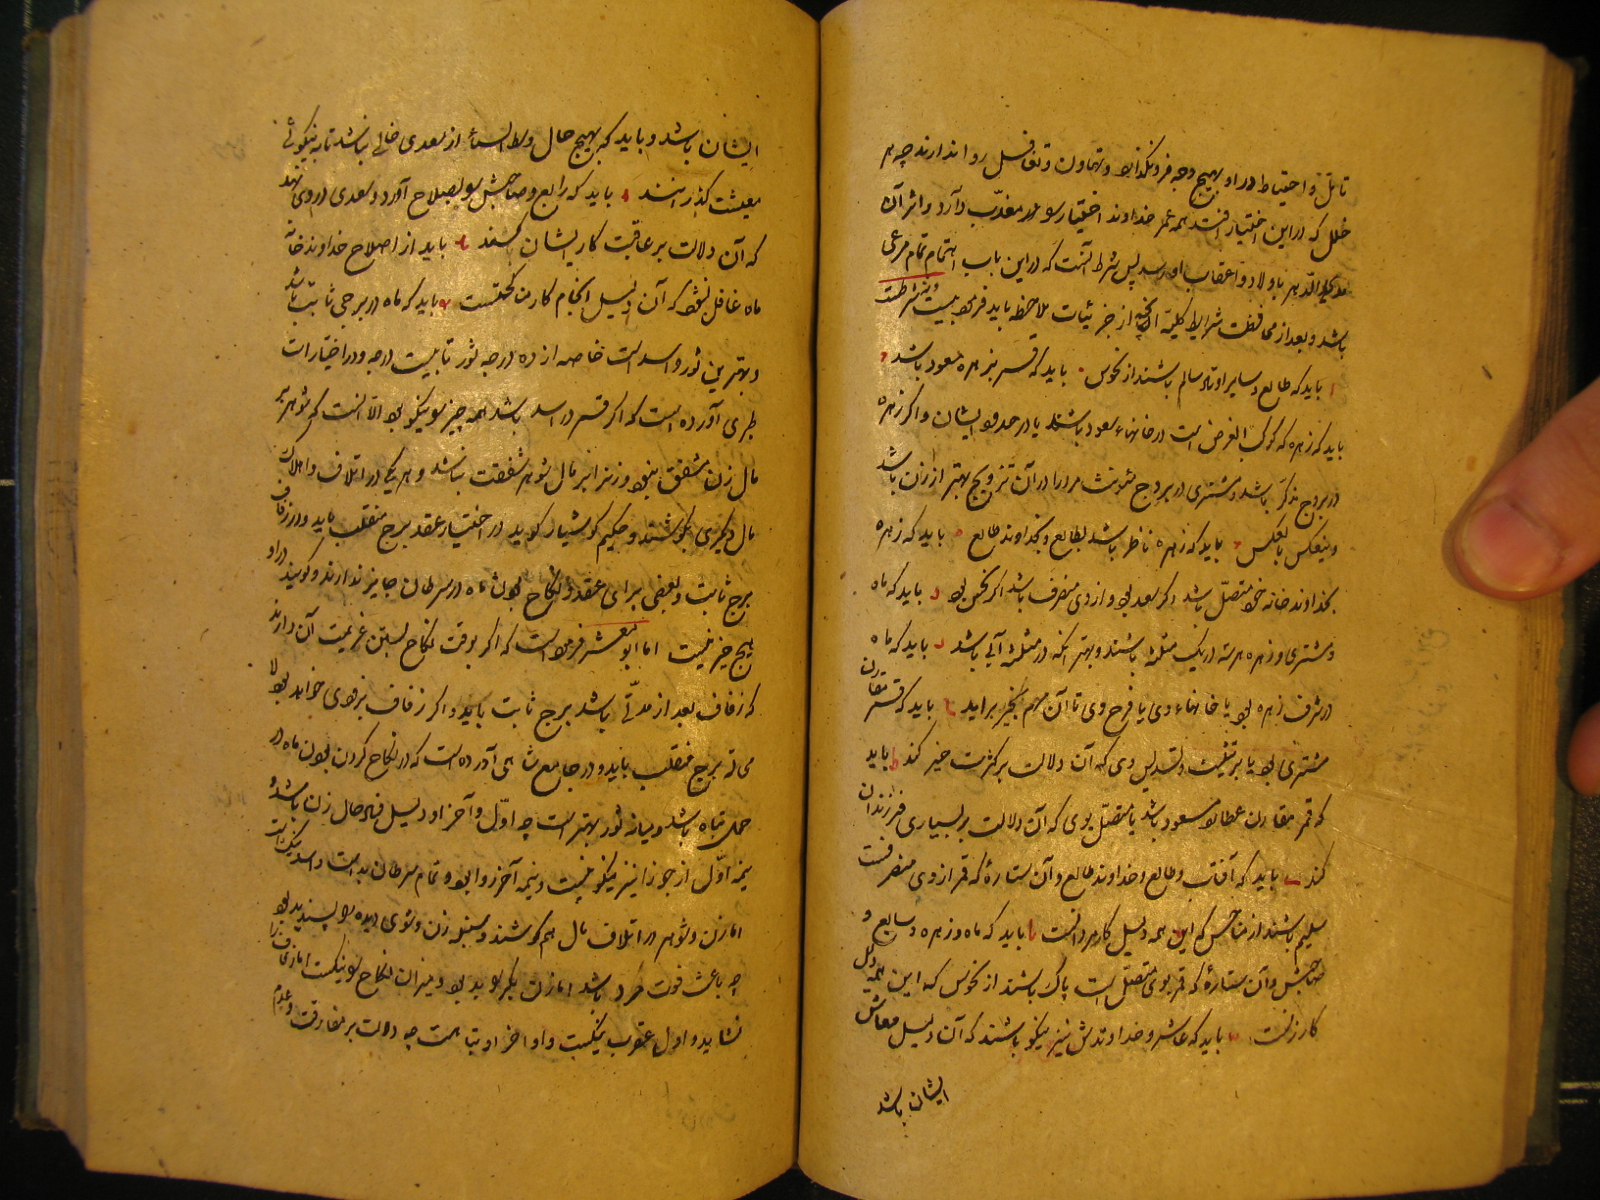 تامل و احتیاط در او بهیچ وجه فرونگذارد و تهاون و تغافل روا ندارند چه هر
خلل که در این اختیار افتد همه عمر خداوند اختیار را معذب دارد و اثر آن
الدهر باولاد و اعقاب او رسد پس شرط آنست که در این باب اهتمام تمام مرعی
باشد و بعد از محافظت شرایط کلیه آنچه از جزئیات ملاحظه باید فرمود بیست و پنج شرطست
ا باید که طالع و سایر اوتاد سالم باشند از نحوس باید که قمر بزهره مسعود باشد
باید که زهره که کوکب الغرض است در خانهاء سعود باشد یا در حدود ایشان و اگر زهره
در بروج مذکر باشد و مشتری در بروج مؤنث مرد را در آن تزویج بهتر از زن باشد
و بالعکس باید که زهره ناظر باشد بطالع و بخداوند طالع ه باید که زهره
بخداوند خانه خود متصل باشد اگر سعد بود و از وی منصرف باشد اگر نحس بود باید که ماه
و مشتری و زهره هر سه در یک مثلثه باشند و بهتر آنکه در مثلثه آبی باشد باید که ماه
در شرف زهره بود یا خانهاء وی یا فرح وی تا آن مهم بخیر برآید باید که قمر مقارن
مشتری بود یا بر تثلیث و تسدیس وی که آن دلالت بر کثرت خیر کند ط باید
که قمر مقارن عطارد مسعود باشد یا متصل بوی که آن دلالت بر بسیاری فرزندان
کند باید که آفتاب و طالع و خداوند طالع و آن ستاره که قمر از وی منصرفست
سلیم باشند از مناحس که این همه دلیل کار مرد است باید که ماه و زهره و سابع و
صاحبش و آن ستاره که قمر بوی متصل است پاک باشند از نحوس که این همه دلیل
کار زنست باید که عاشر و خداوندش نیز نیکو باشند که آن دلیل معاش
ایشان باشد
ایشان باشد و باید که بهیچ حال وسط السماء از سعدی خالی نباشد تا به نیکوئی
معیشت گذرانند باید که رابع و صاحبش را بصلاح آورد و سعدی در وی نهد
که آن دلالت بر عاقبت کار ایشان کند باید از اصلاح خداوند خانه
ماه غافل نشود که آن دلیل انجام کار باید که ماه در برجی ثابت باشد
و بهترین ثور و اسد است خاصه از ده درجه ثور تا بیست درجه و در اختیارات
طبری آورده است که اگر قمر در اسد باشد همه چیز را نیکو بود الا آنست که شوهر بر
مال زن مشفق نبود و زن را بر مال شوهر شفقت نباشد و هر یکی در اتلاف و اهلاک
مال دیگری بکوشند و حکیم کوشیار گوید در اختیار عقد برج منقلب باید و در زفاف
برج ثابت و بعضی برای عقد و نکاح بودن ماه در سرطان جایز ندارند و گویند در او
هیچ خیر نیست اما ابو معشر فرموده است که اگر بوقت نکاح بستن عزیمت آن دارند
که زفاف بعد از مدتی باشد برج ثابت باید و اگر زفاف بزودی خواهد بود لا
محاله برج منقلب باید و در جامع شاهی آورده است که در نکاح کردن بودن ماه در
حمل تباه باشد و میانه ثور بهتر است چه اول و آخر او دلیل فساد حال زن باشد و
نیمه اول از جوزا نیز نیکو نیست و نیمه آخر روا بود و تمام سرطان بد است و اسد نیک است
اما زن و شوهر در اتلاف مال هم کوشند و سنبله زن ثوی دیده را پسندیده بود
چه باعث فوت مرد باشد اما زن بکر را بد بود و میزان نکاح را نیکست اما زفاف را
نشاید و اول عقرب نیکست و اواخر او تباهست چه دلالت بر مفارقت و عدم